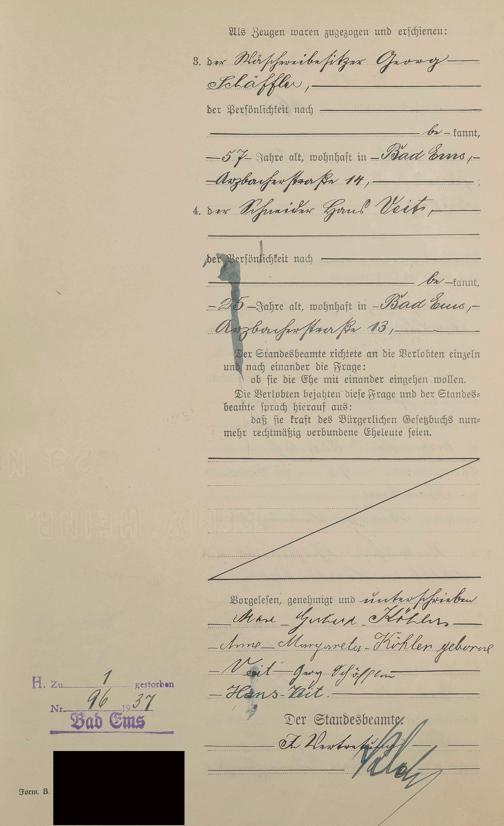 Als Zeugen waren zugezogen und erschienen:
3. der Wäschereibesitzer Georg
Schäffler,
der Persönlichkeit nach
be-kannt,
57 Jahre alt, wohnhaft in Bad Ems,
Arzbacherstraße 14,
4. der Schneider Hans Veit,
der Persönlichkeit nach
be-kannt,
25 Jahre alt, wohnhaft in Bad Ems,
Arzbacherstraße 13,
Der Standesbeamte richtete an die Verlobten einzeln
und nach einander die Frage:
ob sie die Ehe mit einander eingehen wollen.
Die Verlobten bejahten diese Frage und der Standes=
beamte sprach hierauf aus:
daß sie kraft des Bürgerlichen Gesetzbuchs nun=
mehr rechtmäßig verbundene Eheleute seien.
Vorgelesen, genehmigt und unterschrieben
Köhler
Anna Margareta Köhler geborene
Veit Georg Schäffler
Hans Veit.
H. Zu 1 gestorben
Nr. 96 1937
Bad Ems
Der Standesbeamte.
In Vertretung
Form. B.